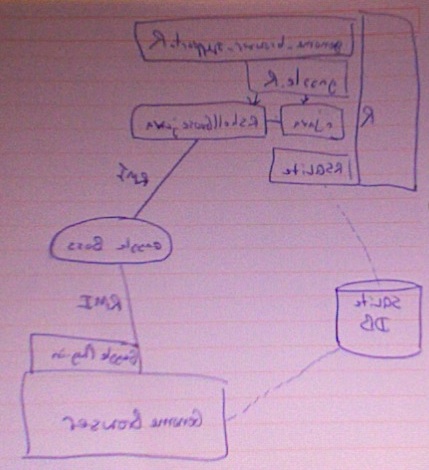 genome_browser_support.R
gaggle.R
R
rJava
RShellGoose.java
RSQLite
RMI
Gaggle Boss
SQLite
DB
RMI
Gaggle Plug-in
Genome Browser